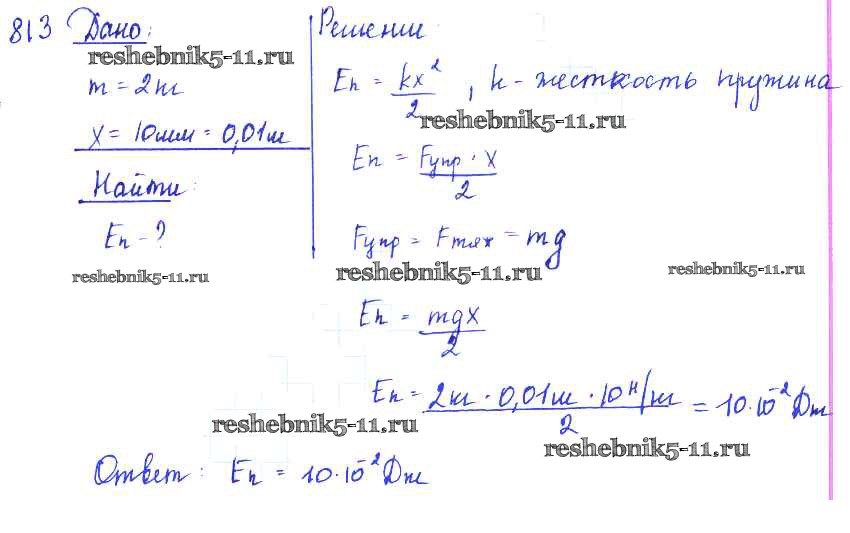 813 Дано:
reshebnik5-11.ru
m = 2кг
x = 10мм = 0,01м
Найти:
Eп - ?
reshebnik5-11.ru
Решение
Eп = kx²/2, k - жесткость пружина
reshebnik5-11.ru
Eп = Fупр · x/2
Fупр = Fтяж = mg
reshebnik5-11.ru
reshebnik5-11.ru
Eп = mgx/2
Eп = 2кг · 0,01м · 10 Н/кг/2 = 10·10⁻² Дж
reshebnik5-11.ru
reshebnik5-11.ru
Ответ: Eп = 10·10⁻² Дж